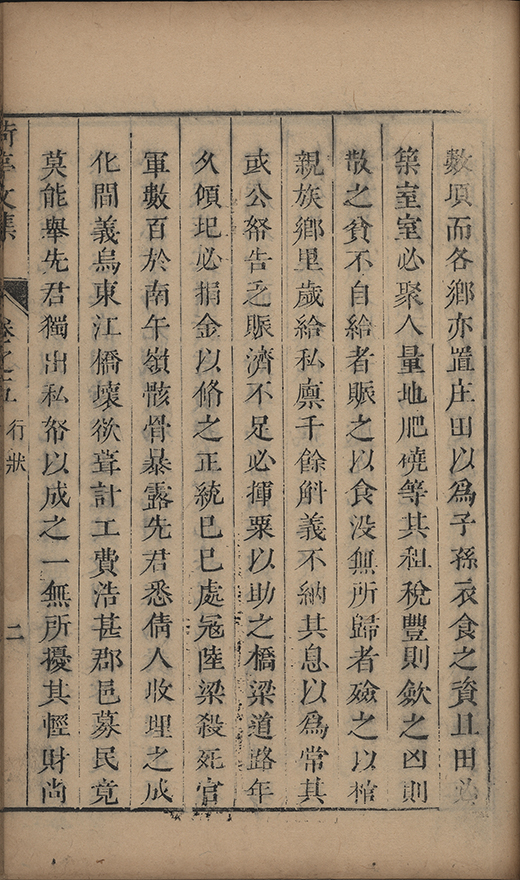 數頃而各鄉亦置庄田以爲子孫衣食之資且田必
築室室必聚人量地肥磽等其租稅豐則斂之凶則
散之貧不自給者賑之以食没無所歸者殮之以棺
親族鄉里歲給私廪千餘斛義不納其息以爲常其
或公帑告乏賑濟不足必揮粟以助之橋梁道路年
久傾圯必捐金以脩之正統己巳處冦陸梁殺死官
軍數百於南午嶺骸骨暴露先君悉倩人收埋之成
化間義烏東江橋壞欲葺計工費浩甚郡邑募民竟
莫能舉先君獨出私帑以成之一無所擾其輕財尚
文集 卷之五 行狀 二